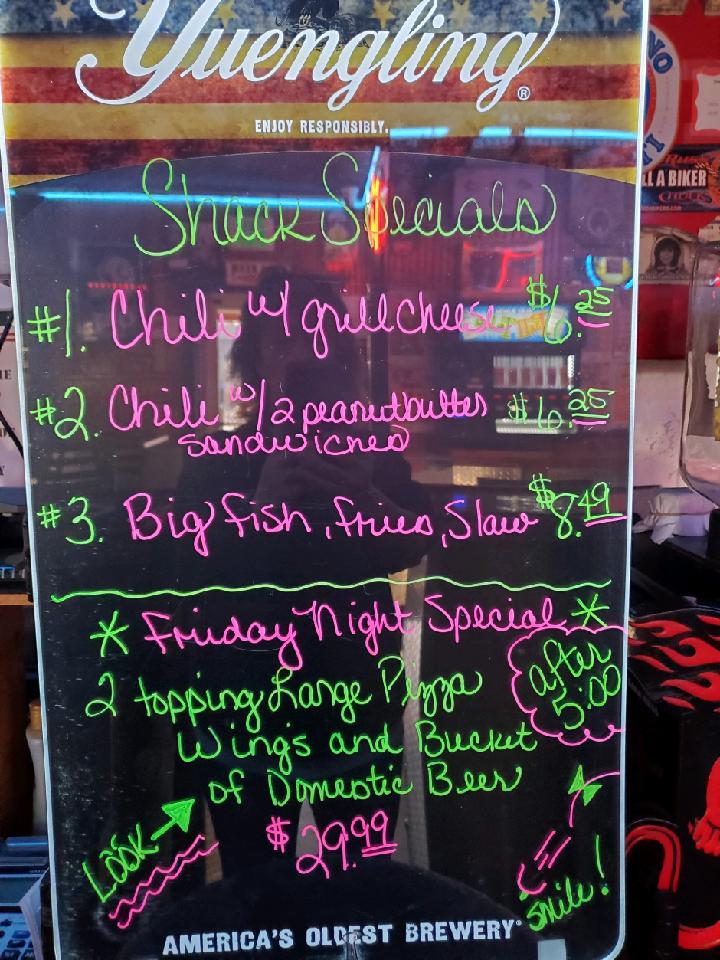 Yuengling®
ENJOY RESPONSIBLY.
Shack Specials
#1. Chili w/ grill cheese $6.25
#2. Chili w/ 2 peanutbutter $6.25
sandwiches
#3. Big fish, fries, Slaw $8.49
* Friday Night Special *
after
5:00
2 topping Large Pizza
Wings and Bucket
of Domestic Beer
LOOK
$29.99
smile!
AMERICA'S OLDEST BREWERY®
LL A BIKER